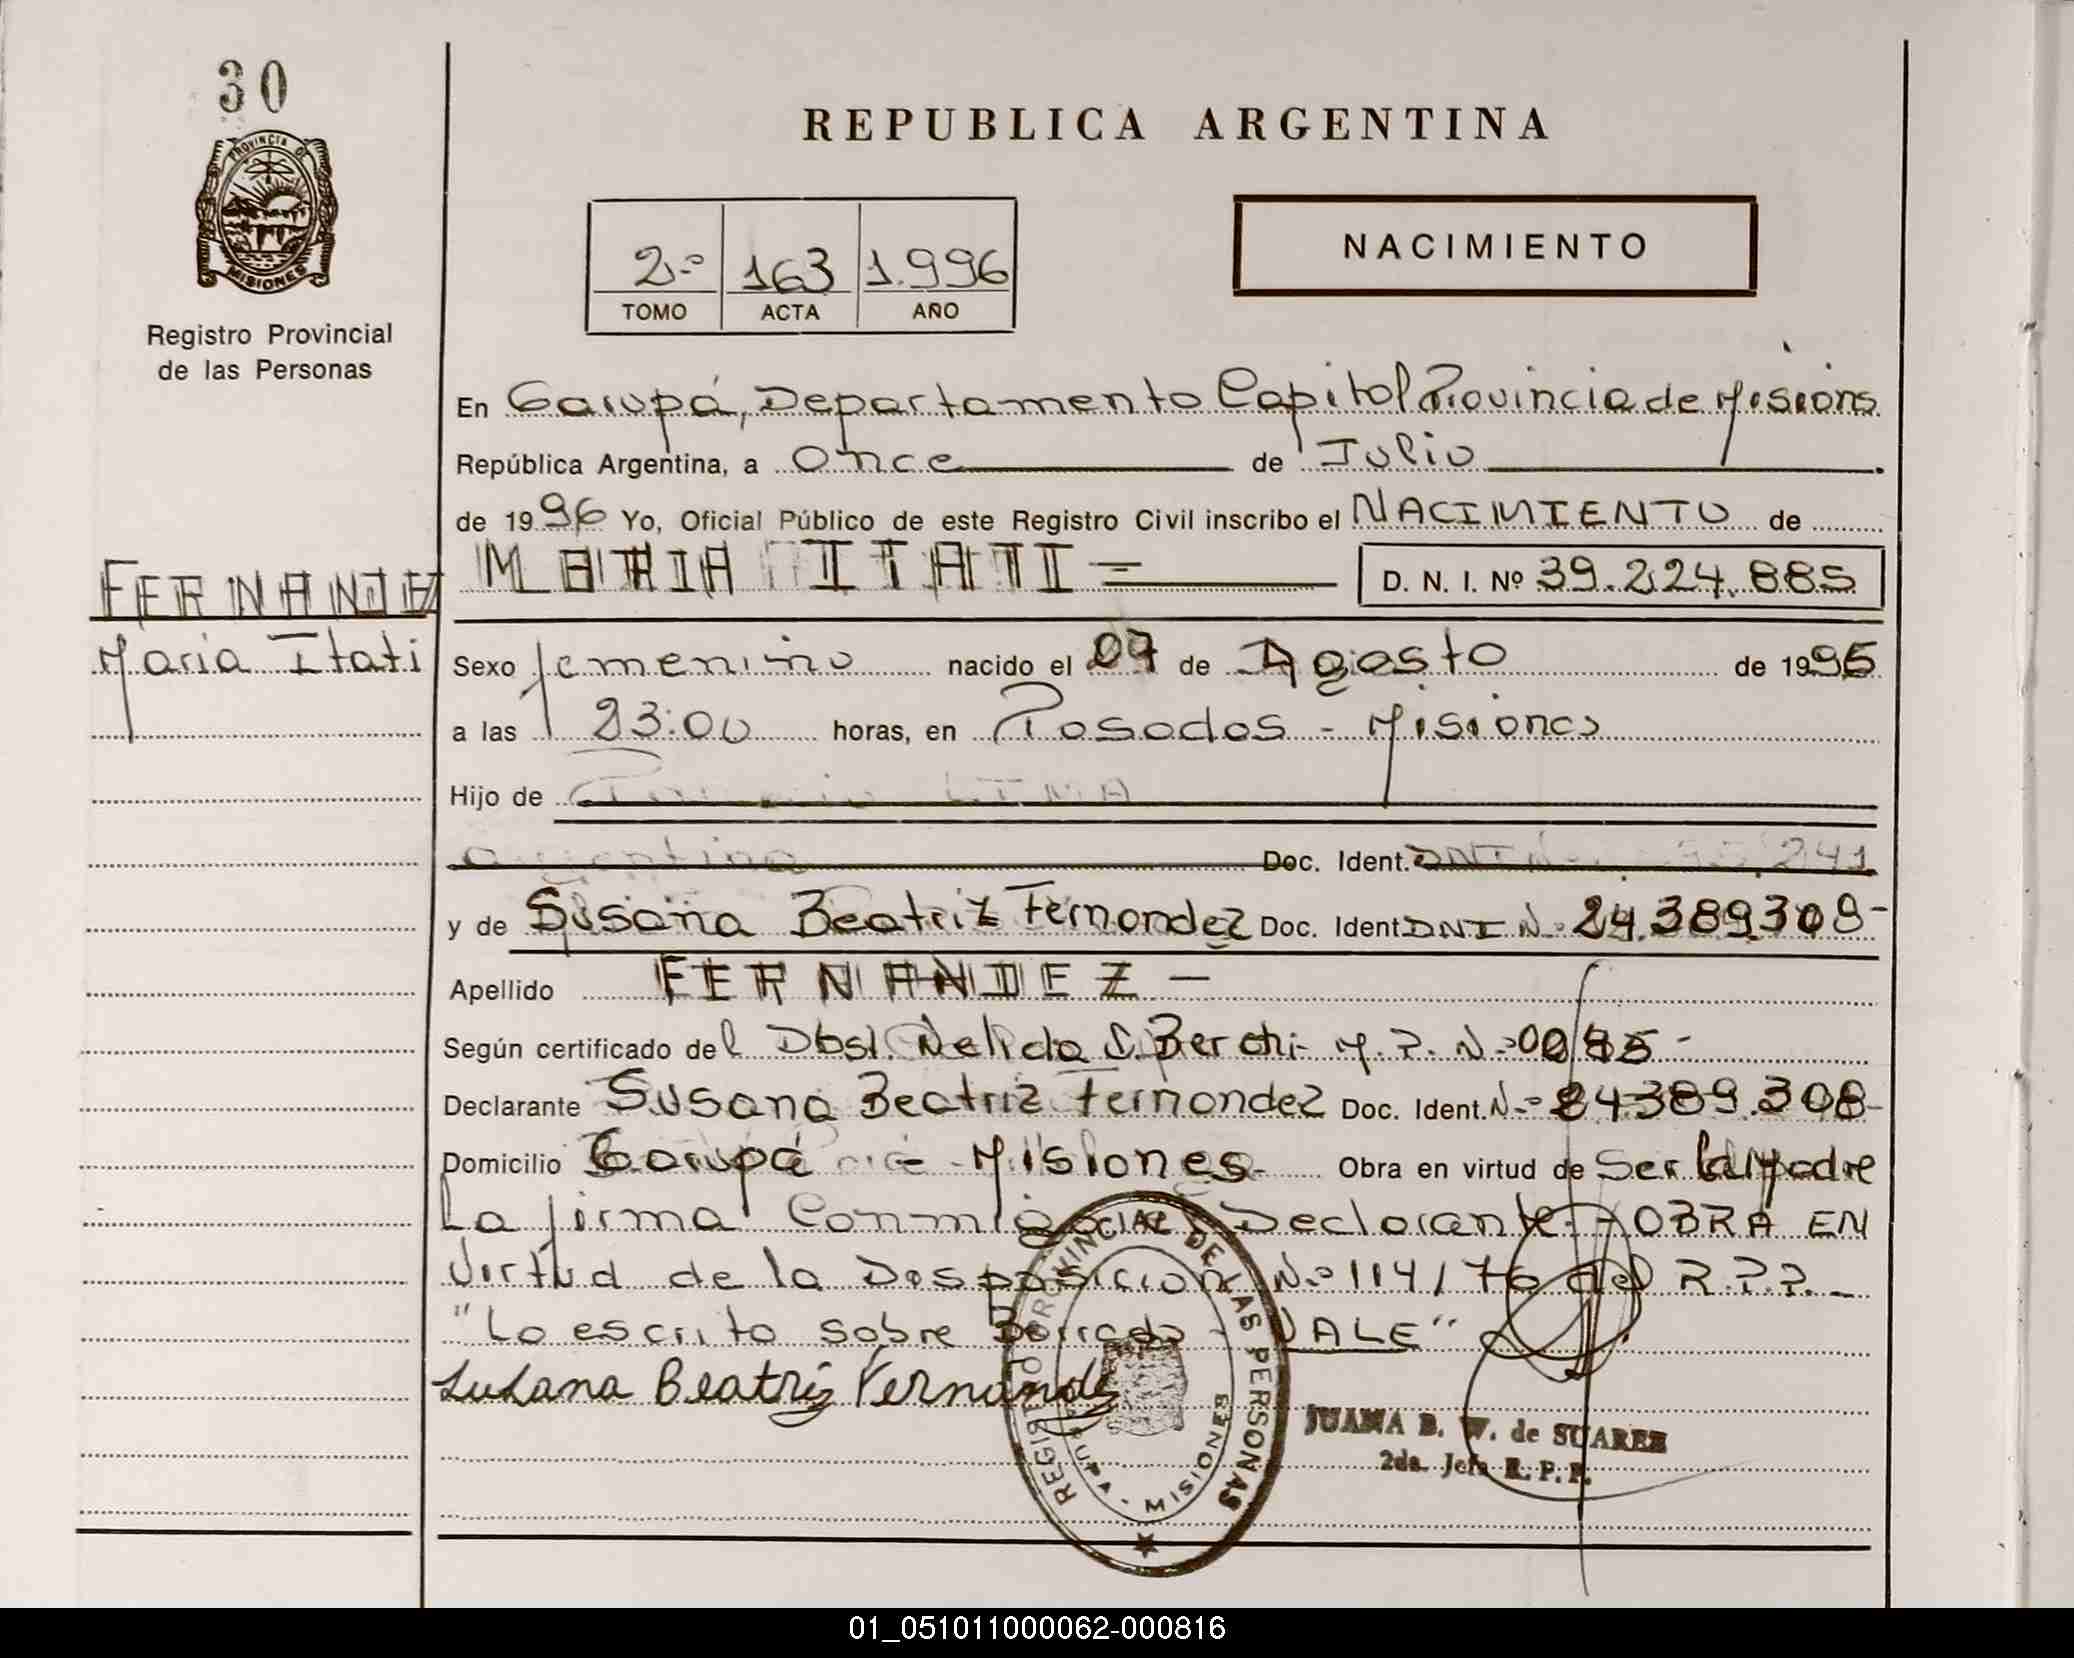 30
PROVINCIA DE
MISIONES
Registro Provincial
de las Personas
REPUBLICA ARGENTINA
2º 163 1.996
TOMO ACTA AÑO
NACIMIENTO
En Garupá, Departamento Capital Provincia de Misiones
República Argentina, a Once de Julio
de 1996 Yo, Oficial Público de este Registro Civil inscribo el NACIMIENTO de
FERNANDEZ MARIA ITATI - D. N. I. Nº 39.224.885
Maria Itati Sexo femenino nacido el 07 de Agosto de 1995
a las 23:00 horas, en Posadas - Misiones
Hijo de LIMA
argentino Doc. Ident. DNI N 241
y de Susana Beatriz Fernandez Doc. Ident DNI Nº 24.389.308-
Apellido FERNANDEZ -
Según certificado del Obst. Nelida S. Berchi - M.P. Nº 0085 -
Declarante Susana Beatriz Fernandez Doc. Ident. Nº 24.389.308-
Domicilio Garupá - Misiones - Obra en virtud de Ser la Madre
La firma Conmigo Declarante - OBRA EN
Virtud de la Disposicion Nº 114/76 del R.P.P. -
"Lo escrito sobre Borrado - VALE"
Susana Beatriz Fernandez
REGISTRO PROVINCIAL DE LAS PERSONAS
GARUPA - MISIONES
JUANA B. W. de SUAREZ
2da. Jefa R. P. P.
01_051011000062-000816